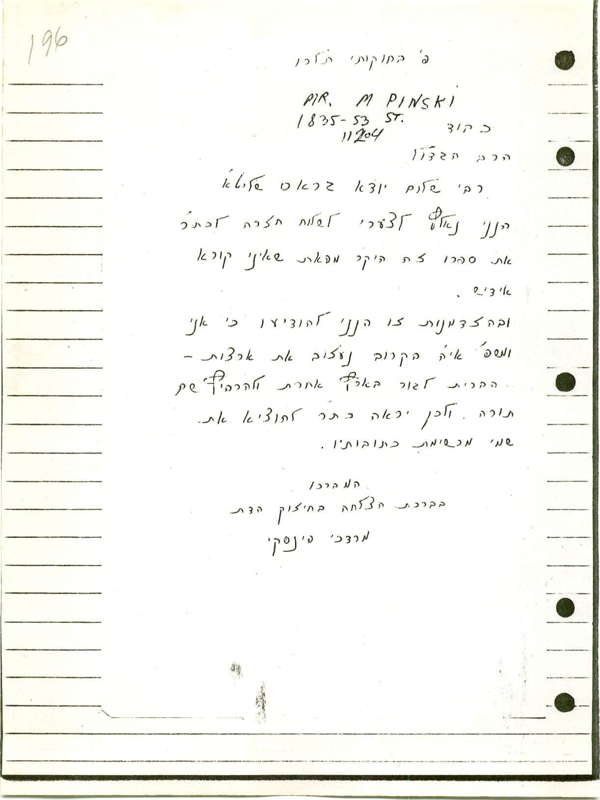 196
פ' בחוקותי תשכו
MR. M PINSKI
1835-53 ST.
11204
כ קוד
הרב הגדול
רבי שלום יודא גראס שליט"א
הנני נאלץ לצערי לשלוח חזרה לכת"ר
את ספרו זה היקר מפאת שאיני קורא
אידיש.
ובהזדמנות זו הנני להודיעו כי אני
ומשפ' אי"ה הקרוב נעזוב את ארצות –
הברית לגור בארץ אחרת ולהרביץ שם
תורה. ולכן יראה כתר להוציא את
שמי מרשימת כתובותיו.
המברכו
בברכת הצלחה בחיזוק הדת
מרדכי פינסקי